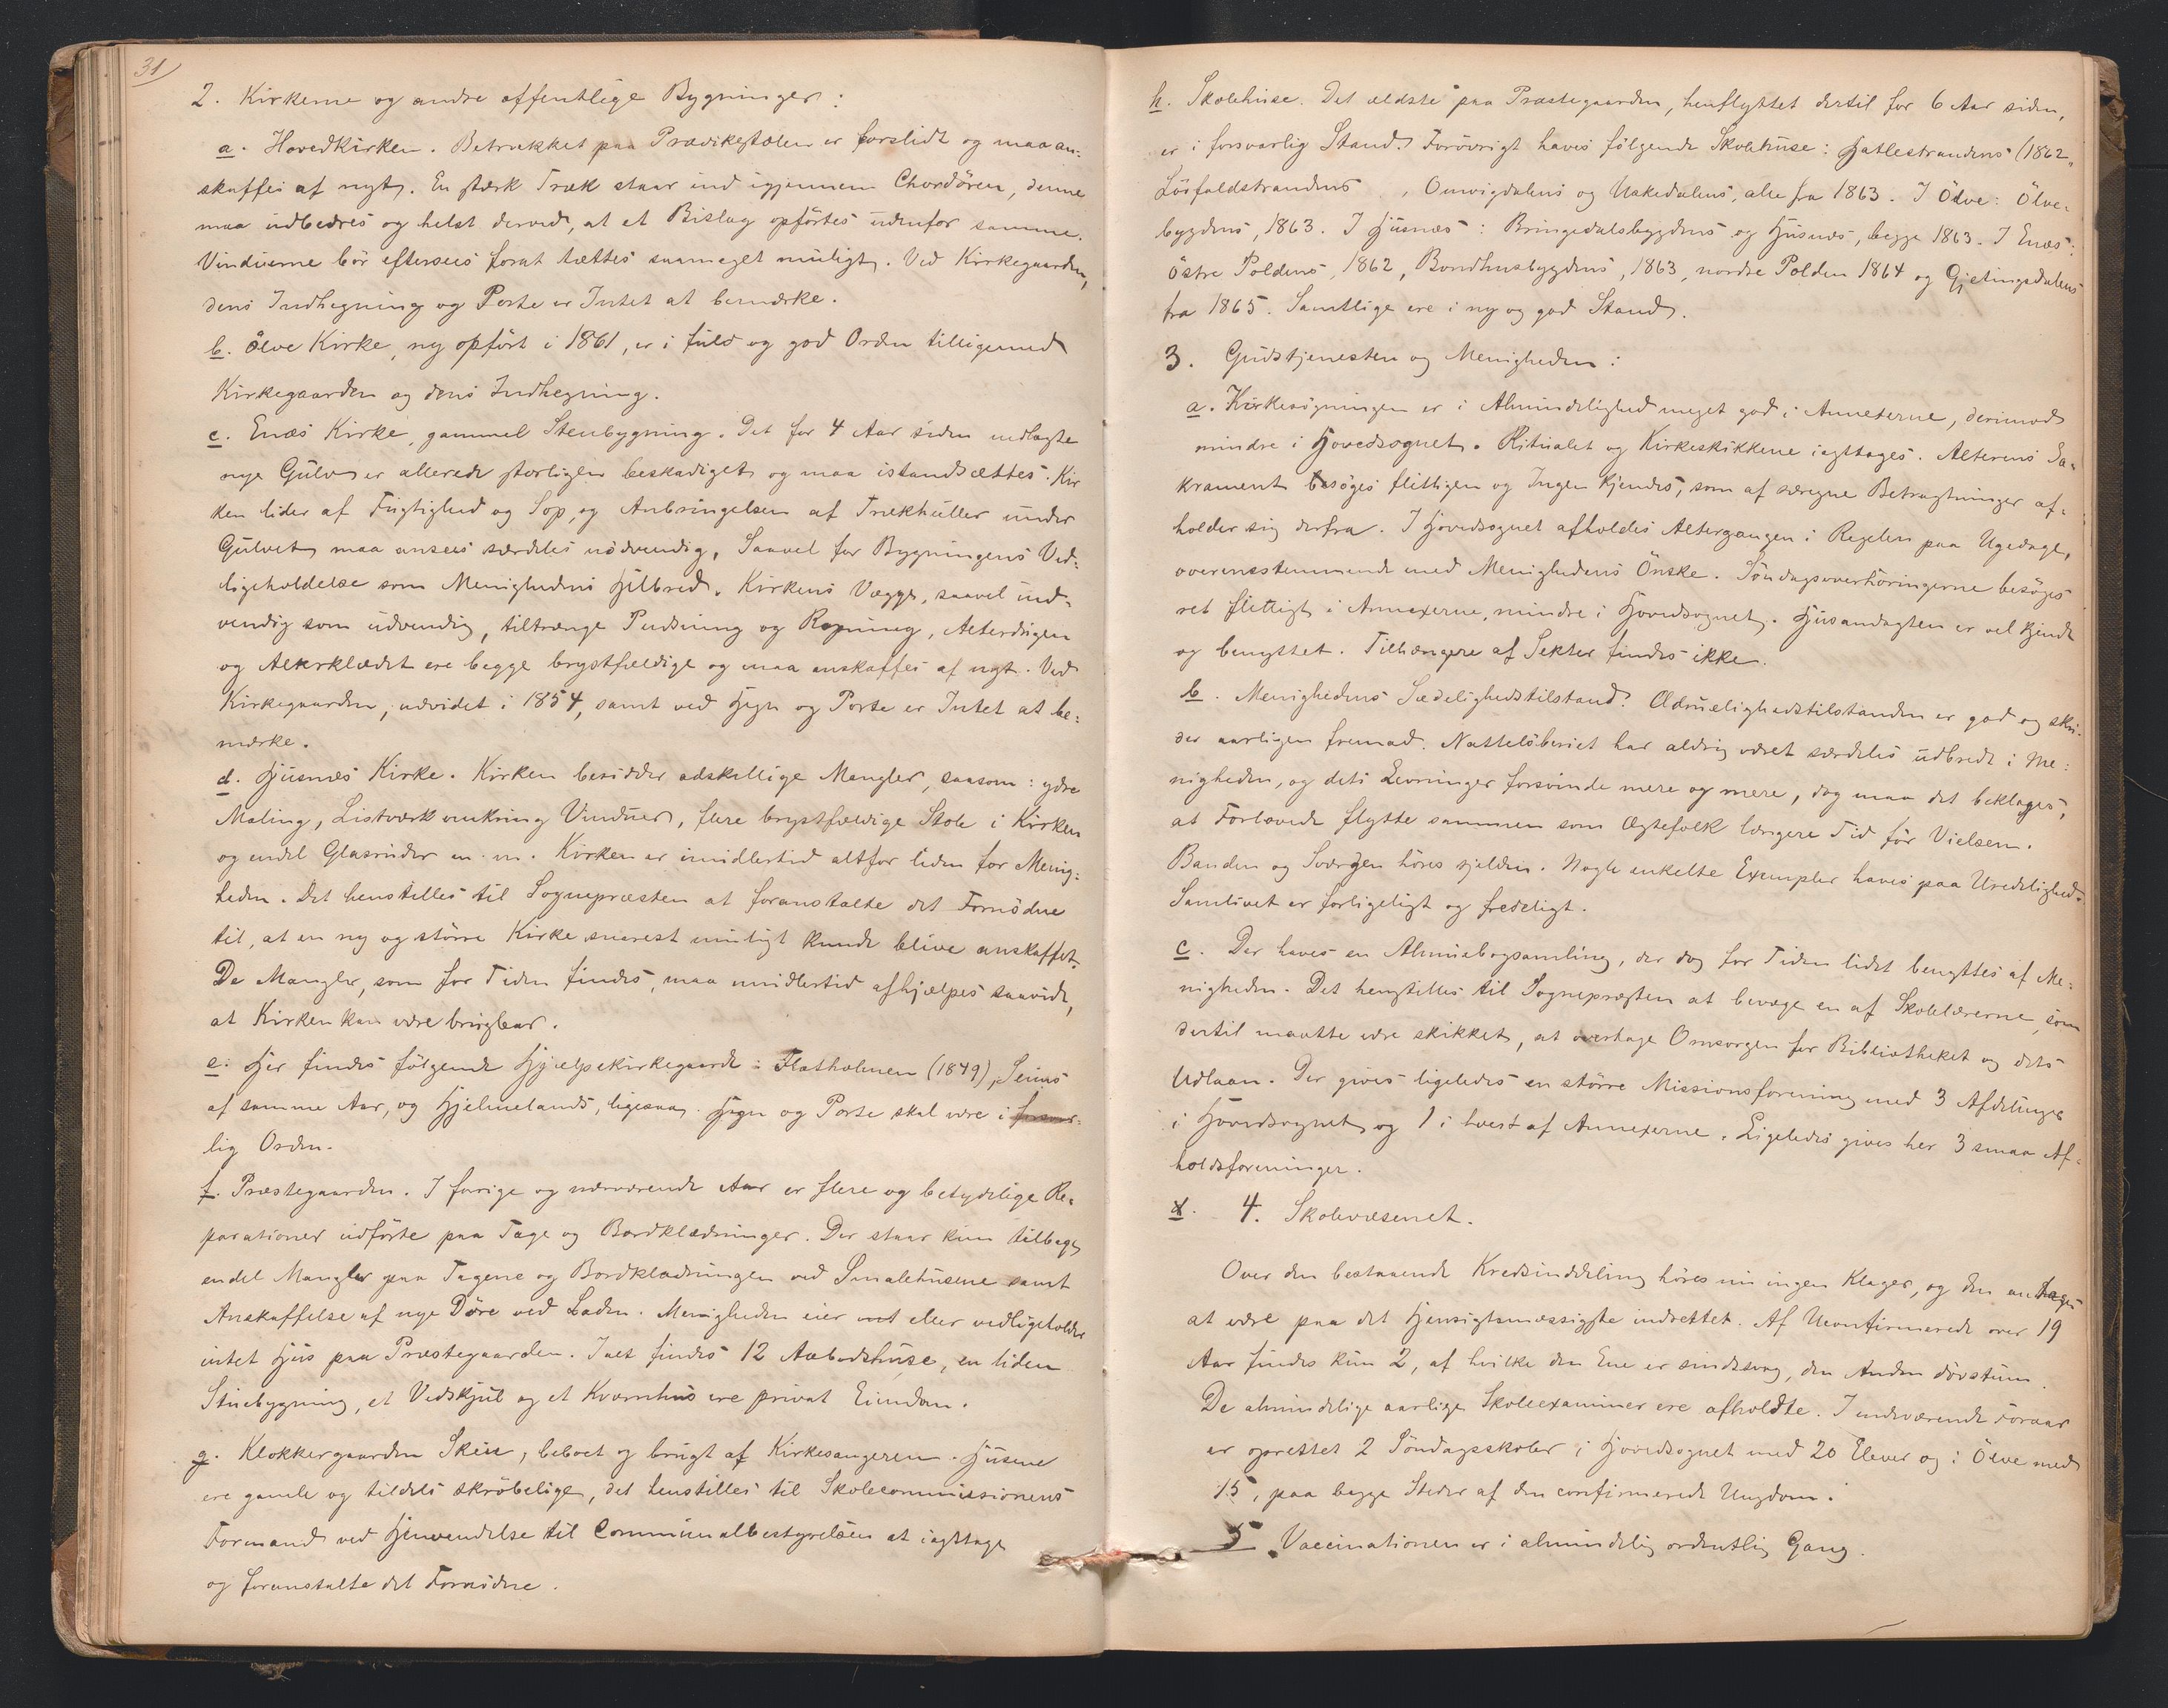 31
2. Kirkerne og andre offentlige Bygninger:
a. Hovedkirken. Betrækket paa Prædikestolen er forslidt og maa an-
skaffes af nyt. En stærk Træk staar ind igjennem Chordören, denne
maa udbedres og helst derved, at et Bislag opförtes udenfor samme.
Vinduerne bör eftersees forat tættes saameget muligt. Ved Kirkegaarden,
dens Indhegning og Porte er Intet at bemærke.
b. Ölve Kirke, ny opfört i 1861, er i fuld og god Orden tilligemed
Kirkegaarden og dens Indhegning.
c. Enæs Kirke, gammel Stenbygning. Det for 4 Aar siden nedlagte
nye Gulv er allerede storligen beskadiget og maa istandsættes. Kir
ken lider af Fugtighed og Sop, og Anbringelsen af Trækhuller under
Gulvet maa ansees særdeles nödvendig, saavel for Bygningens Ved-
ligeholdelse som Menighedens Helbred. Kirkens Vægge, saavel ind-
vendig som udvendig, tiltrænge Pudsning og Rapning, Alterdugen
og Alterklædet ere begge bröstfældige og maa anskaffes af nyt. Ved
Kirkegaarden, udvidet i 1854, samt ved Hegn og Porte er Intet at be-
mærke.
d. Husnæs Kirke. Kirken besidder adskillige Mangler, saasom: ydre
Maling, Listværk omkring Vinduer, flere bröstfældige Stole i Kirken
og endel Glasruder m. m. Kirken er imidlertid altfor liden for Menig-
heden. Det henstilles til Sognepræsten at foranstalte det Fornödne
til, at en ny og större Kirke snarest muligt kunde blive anskaffet.
De Mangler, som for Tiden findes, maa imidlertid afhjælpes saavidt,
at Kirken kan være brugbar.
e. Her findes fölgende Hjælpekirkegaarde: Flatholmen (1849), Seims
af samme Aar, og Hjelmelands, ligesaa. Hegn og Porte skal være i forsvar-
lig Orden.
f. Præstegaarden. I forrige og nærværende Aar er flere og betydelige Re-
parationer udförte paa Tage og Bordklædninger. Der staar kun tilbage
endel Mangler paa Tagene og Bordklædningen ved Smalehusene samt
Anskaffelse af nye Döre ved Laden. Menigheden eier eller vedligeholder
intet Hus paa Præstegaarden. Ialt findes 12 Aabodshuse, en liden
Stuebygning, et Vedskjul og et Kværnhus ere privat Eiendom.
g. Klokkergaarden Skeie, beboet og brugt af Kirkesangeren. Husene
ere gamle og tildels skröbelige, det henstilles til Skolecommissionens
Formand ved Henvendelse til Communalbestyrelsen at iagttage
og foranstalte det Fornödne.
h. Skolehuse. Det ældste paa Præstegaarden, henflyttet dertil for 6 Aar siden,
er i forsvarlig Stand. Forövrigt haves fölgende Skolehuse: Hatlestrandens (1862,
Löfaldstrandens, Omvigdalens og Uskedalens, alle fra 1863. I Ölve: Ölve-
bygdens, 1863. I Husnæs: Bringedalsbygdens og Husnæs, begge 1863. I Enæs:
Östre Poldens, 1862, Bondhusbygdens, 1863, nordre Polden 1864 og Gjetingsdalens
fra 1865. Samtlige ere i ny og god Stand.
3. Gudstjenesten og Menigheden:
a. Kirkesögningen er i Almindelighed meget god i Annexerne, derimod
mindre i Hovedsognet. Ritualet og Kirkeskikkene iagttages. Alterens Sa-
krament besöges flittigen og Ingen kjendes, som af særegne Betragtninger af-
holder sig derfra. I Hovedsognet afholdes Altergangen i Regelen paa Ugedage,
overensstemmende med Menighedens Önske. Söndagsoverhöringerne besöges
ret flittigt i Annexerne, mindre i Hovedsognet. Husandagten er vel kjendt
og benyttet. Tilhængere af Sekter findes ikke.
b. Menighedens Sædelighedstilstand. Ædruelighedstilstanden er god og skri-
der aarligen fremad. Natteløberiet har aldrig været særdeles udbredt i Me-
nigheden, og dets Levninger forsvinde mere og mere, dog maa det beklages,
at Forlovede flytte sammen som Ægtefolk længere Tid för Vielsen.
Banden og Sværgen höres sjelden. Nogle enkelte Exempler haves paa Uredelighed.
Samlivet er forligeligt og fredeligt.
c. Der haves en Almuebogsamling, der dog for Tiden lidet benyttes af Me-
nigheden. Det henstilles til Sognepræsten at bevæge en af Skolelærerne, som
dertil maatte være skikket, at overtage Omsorgen for Bibliotheket og dets
Udlaan. Der gives ligeledes en större Missionsforening med 3 Afdelinger
i Hovedsognet og 1 i hvert af Annexerne. Ligeledes gives her 3 smaa Af-
holdsforeninger.
d. 4. Skolevæsenet.
Over den bestaaende Kredsinddeling höres nu ingen Klager, og den antages
at være paa det Hensigtsmæssigste indrettet. Af Uconfirmerede over 19
Aar findes kun 2, af hvilke den Ene er sindssvag, den Anden dövstum.
De almindelige aarlige Skoleexaminer ere afholdte. I nærværende Foraar
er oprettet 2 Söndagsskoler i Hovedsognet med 20 Elever og i Ölve med
15, paa begge Steder af den confirmerede Ungdom.
5. Vaccinationen er i almindelig ordentlig Gang.